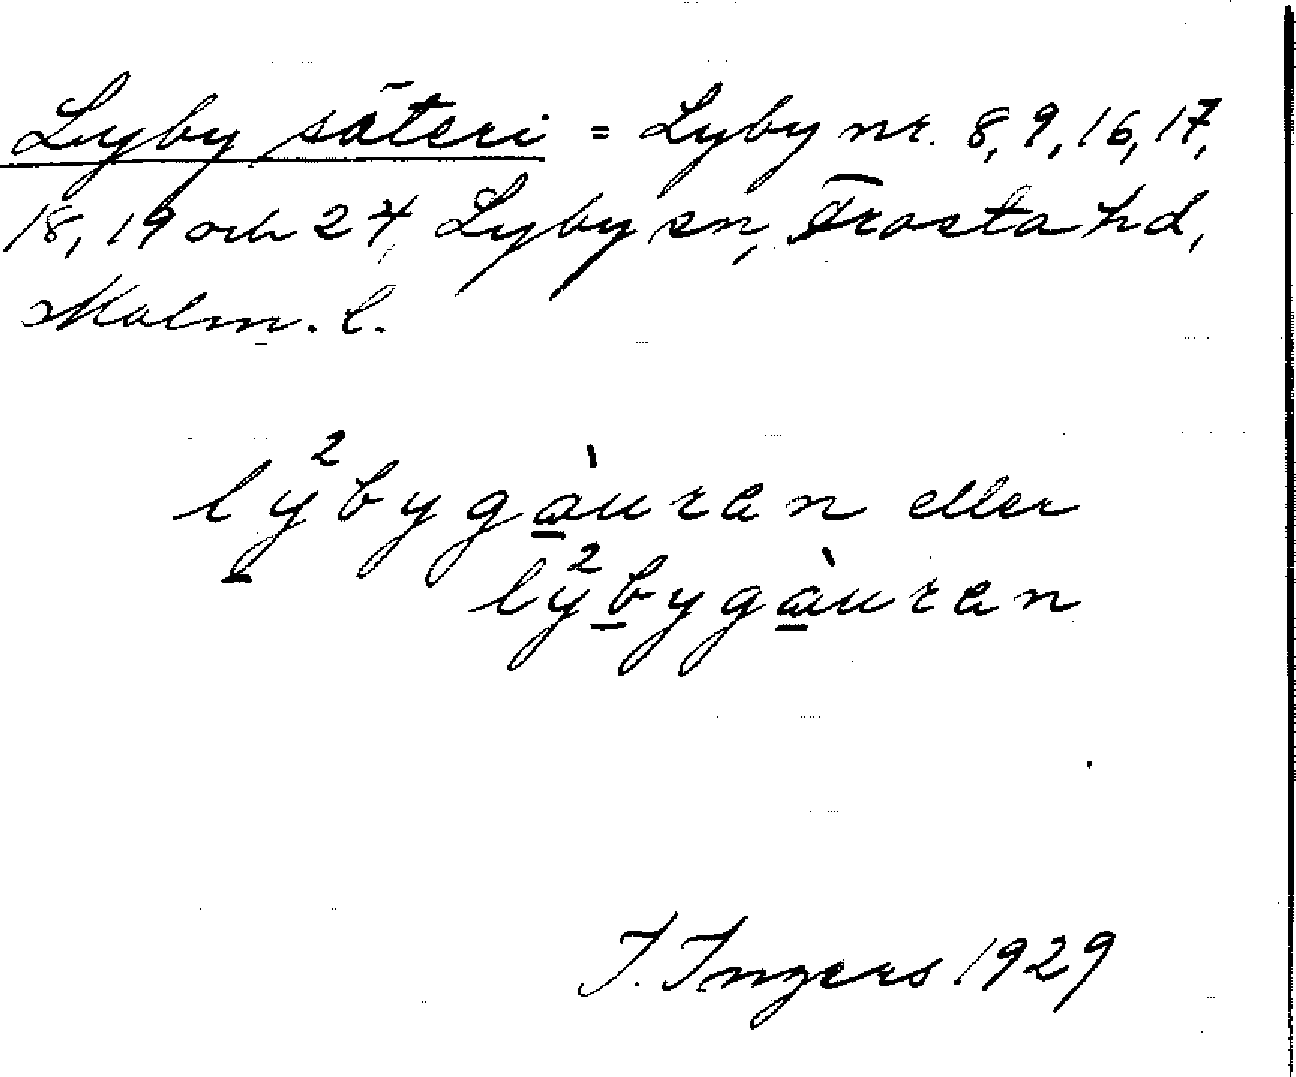 Lyby säteri = Lyby nr. 8, 9, 16, 17,
18, 19 och 24, Lyby sn, Frosta hd,
Malm. l.
lý²bygàuran eller
lý²bygàuran
I. Ingers 1929